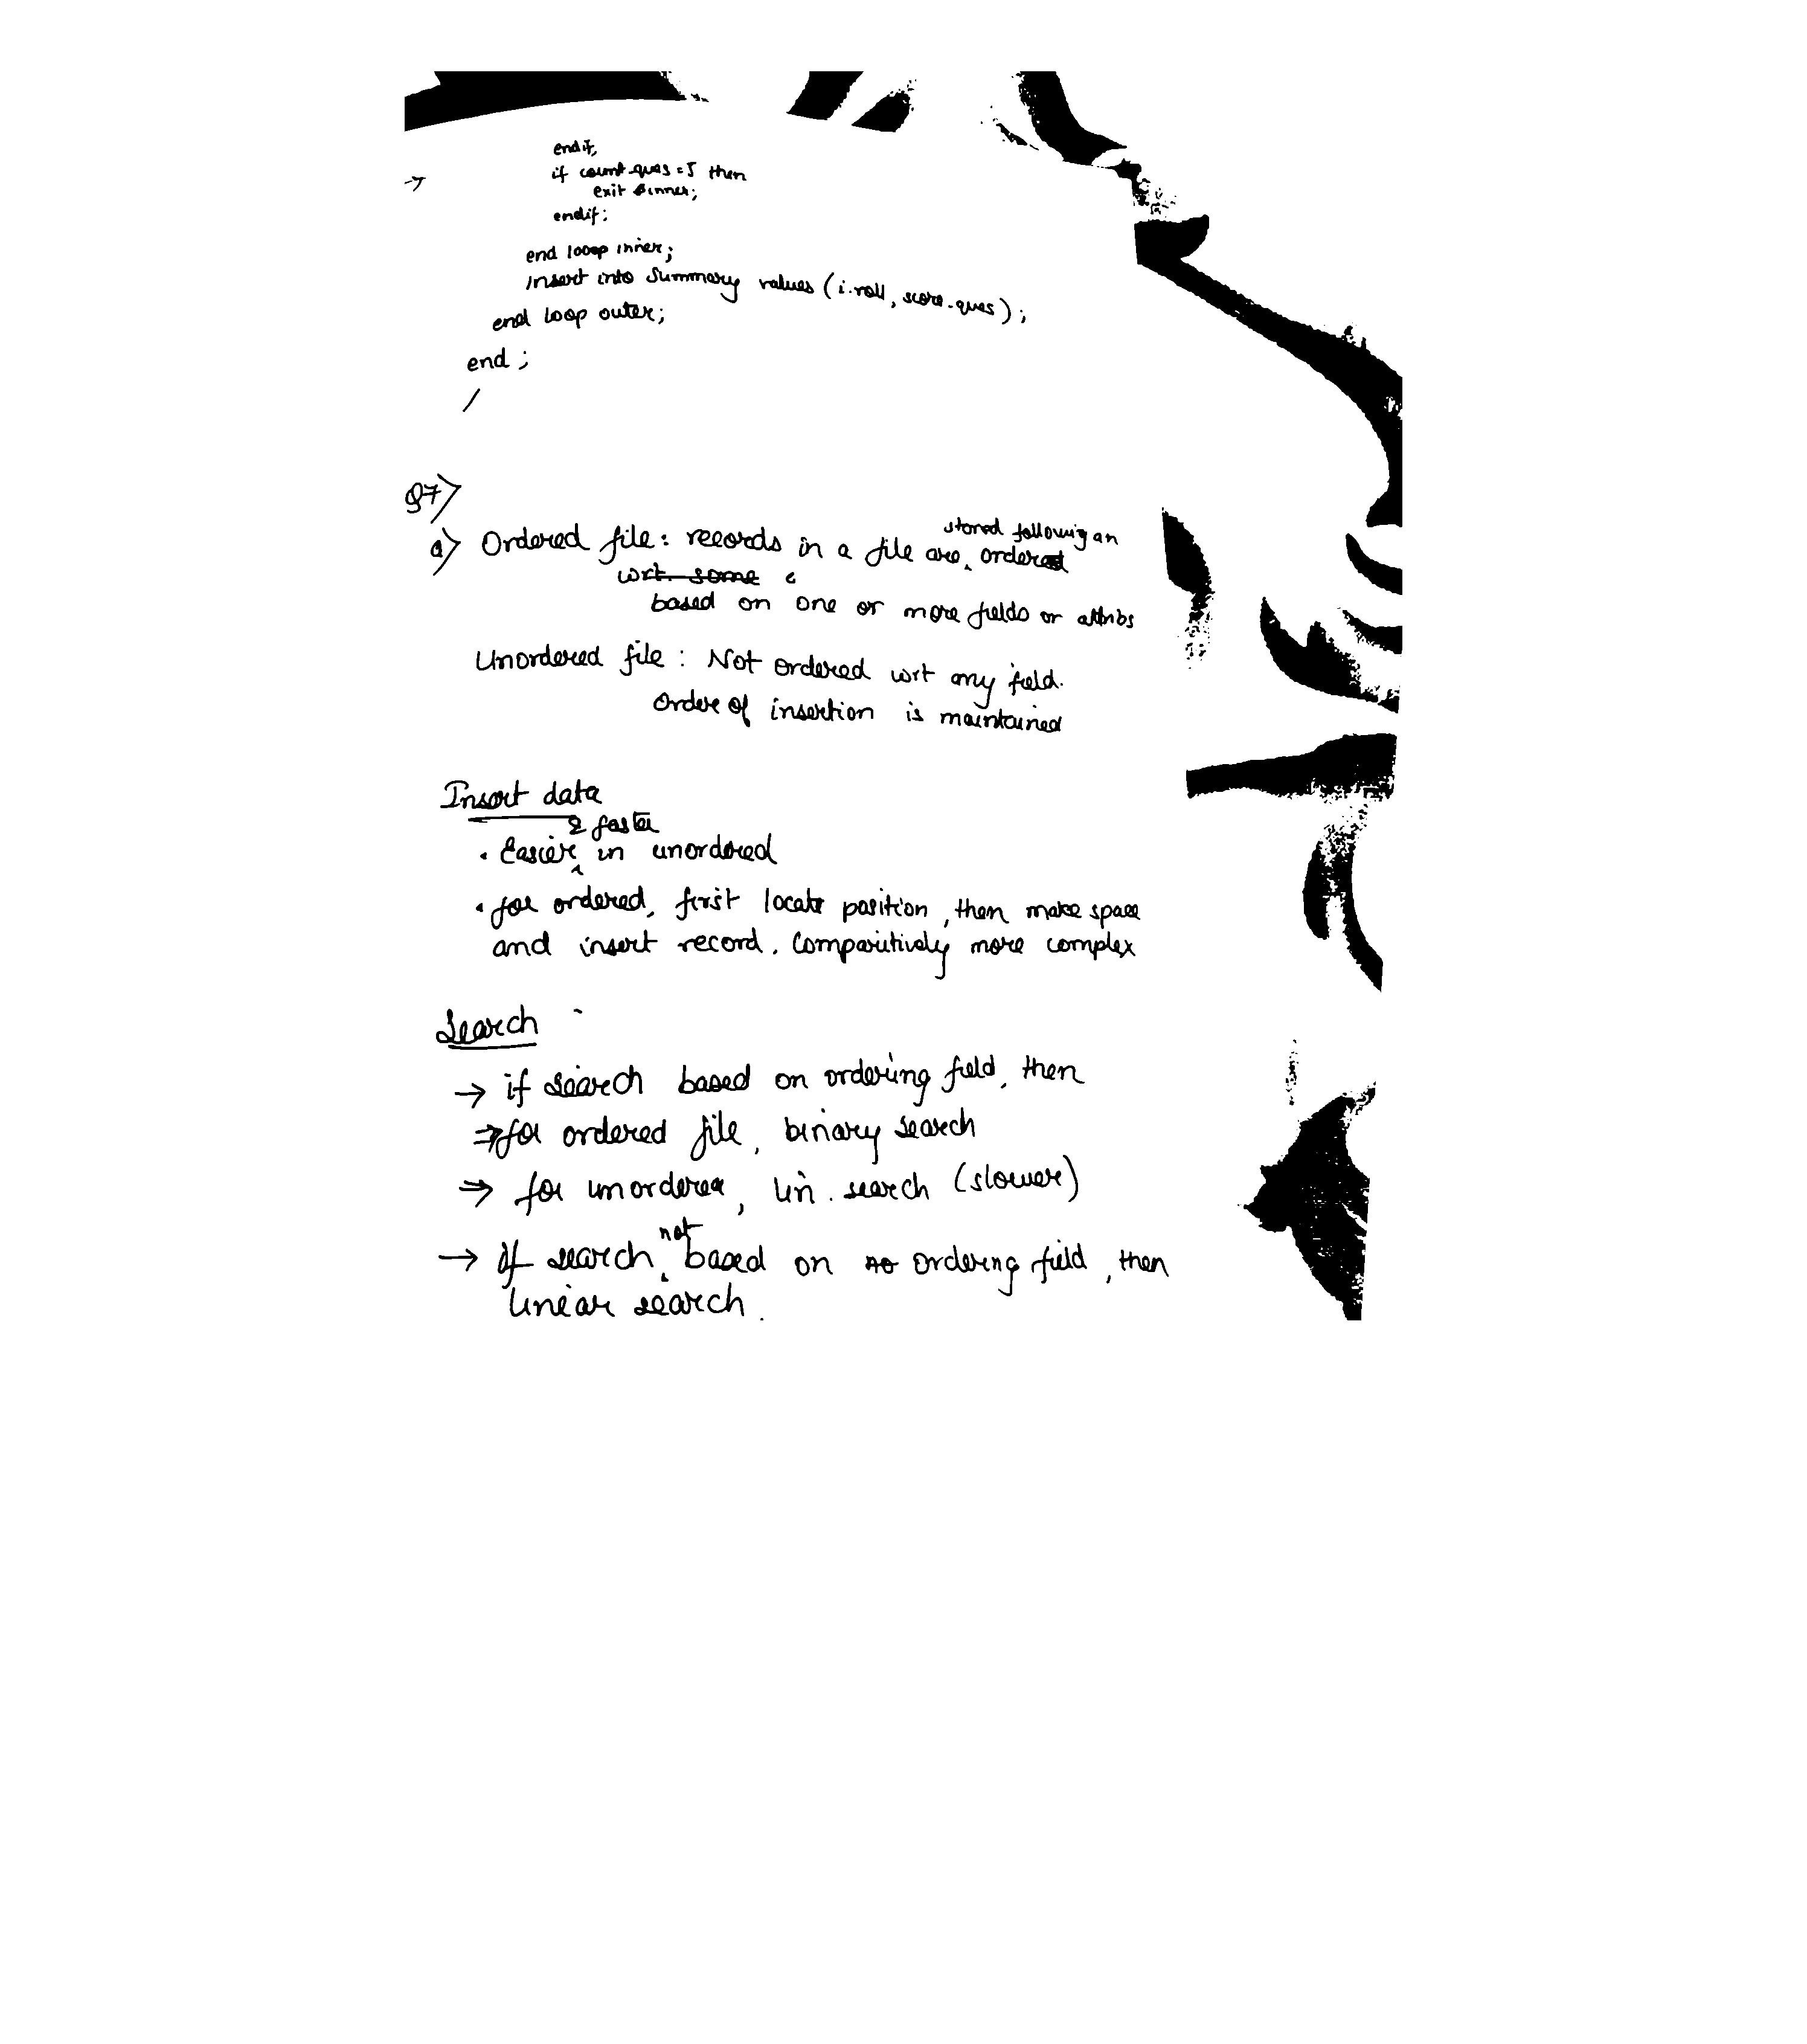 endif;
if count_ques = 5 then
exit inner;
endif;
end looop inner;
insert into Summary values (i.roll, score_ques);
end loop outer;
end;
/
Q7>
a> Ordered file: records in a file are stored following an order
wrt some
based on one or more fields or attribs
Unordered file: Not ordered wrt any field.
Order of insertion is maintained
Insert data
• Easier & faster in unordered
• for ordered, first locate position, then make space
and insert record. Comparitively more complex
Search
→ if search based on ordering field, then
⇒ for ordered file, binary search
⇒ for unordered, lin. search (slower)
→ if search not based on no ordering field, then
linear search.